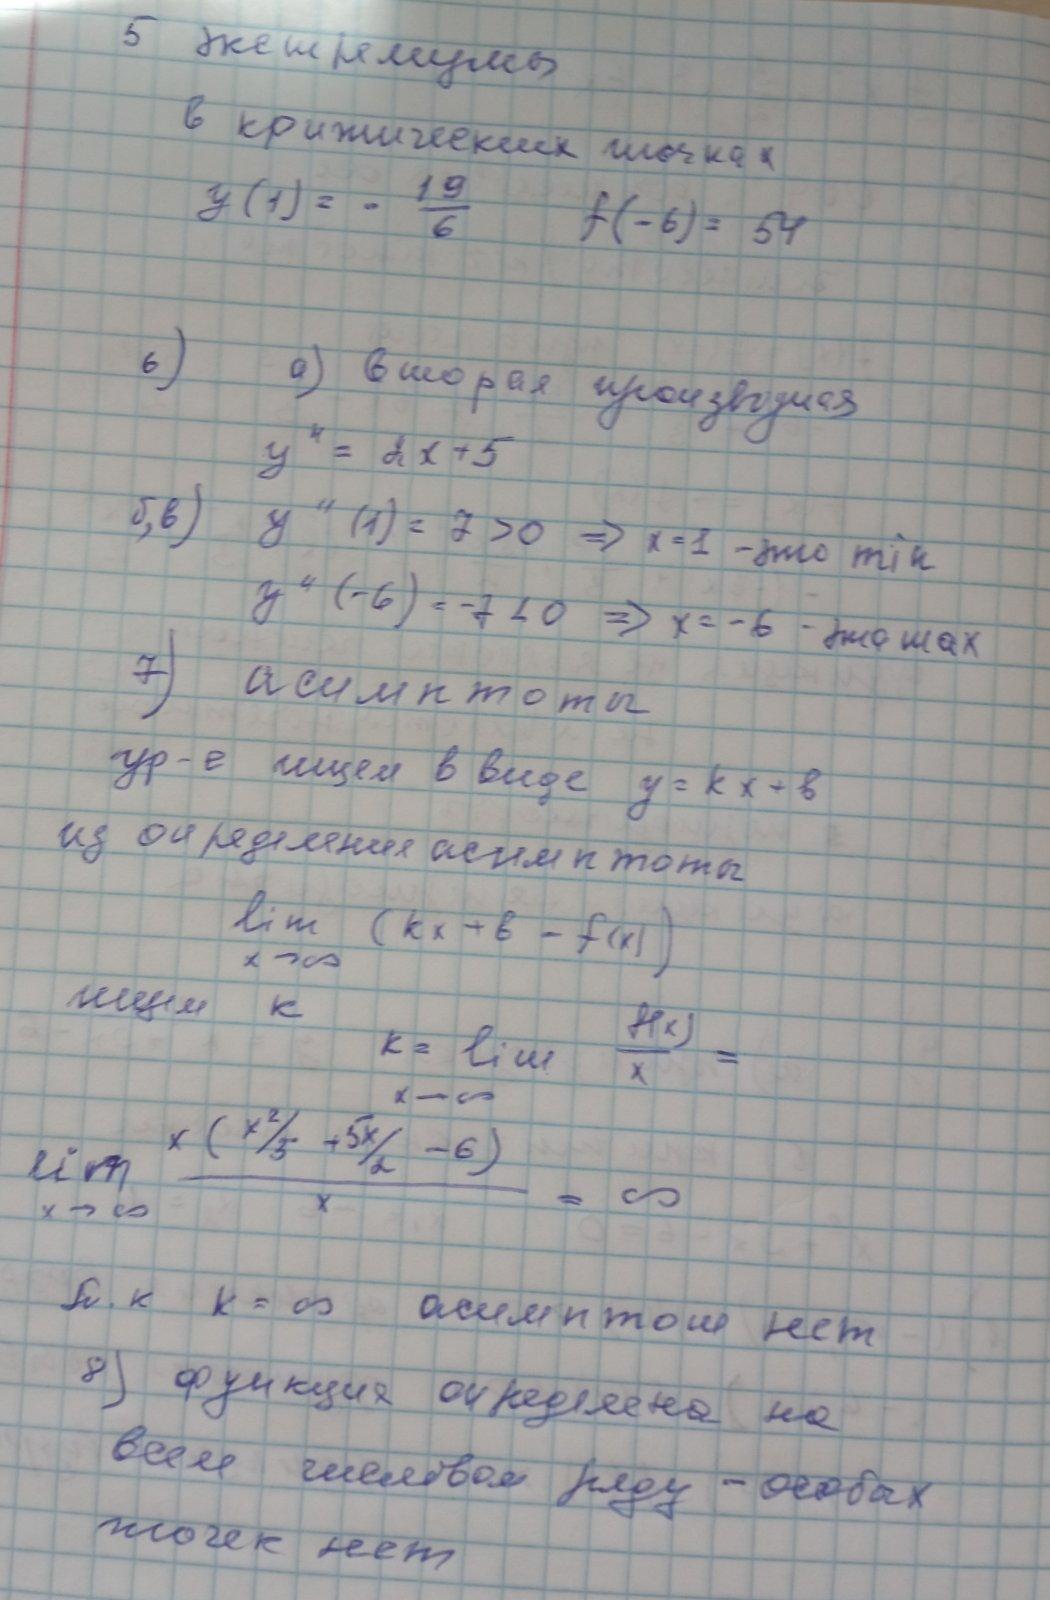 5 экстремумы
в критических точках
y(1) = - 19/6 f(-6) = 54
6) а) вторая производная
y'' = 2x+5
б,в) y''(1) = 7 > 0 => x=1 - это min
y''(-6) = -7 < 0 => x=-6 - это max
7) асимптоты
ур-е ищем в виде y = kx + b
из определения асимптоты
lim x→∞ (kx + b - f(x))
ищем к
k = lim x→∞ f(x)/x =
lim x→∞ x(x²/3 + 5x/2 - 6)/x = ∞
т.к k = ∞ асимптот нет
8) функция определена на
всем числовом ряду - особых
точек нет